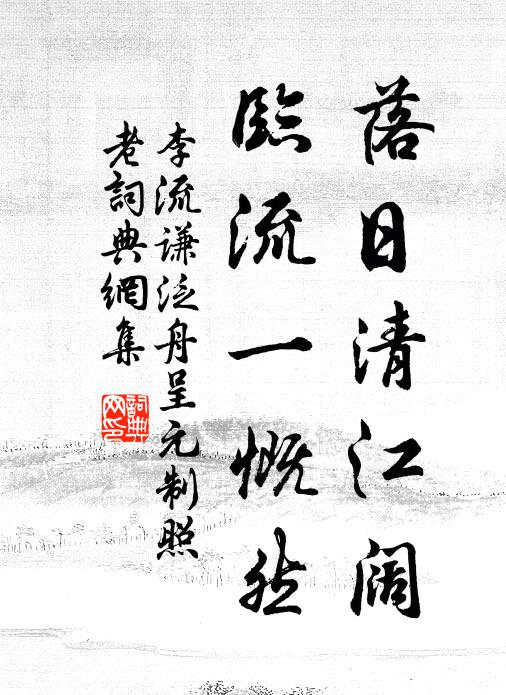 落日清江阔
臨流一慨然
李流谦泛舟呈元制照
老詞典網集
詞典网印